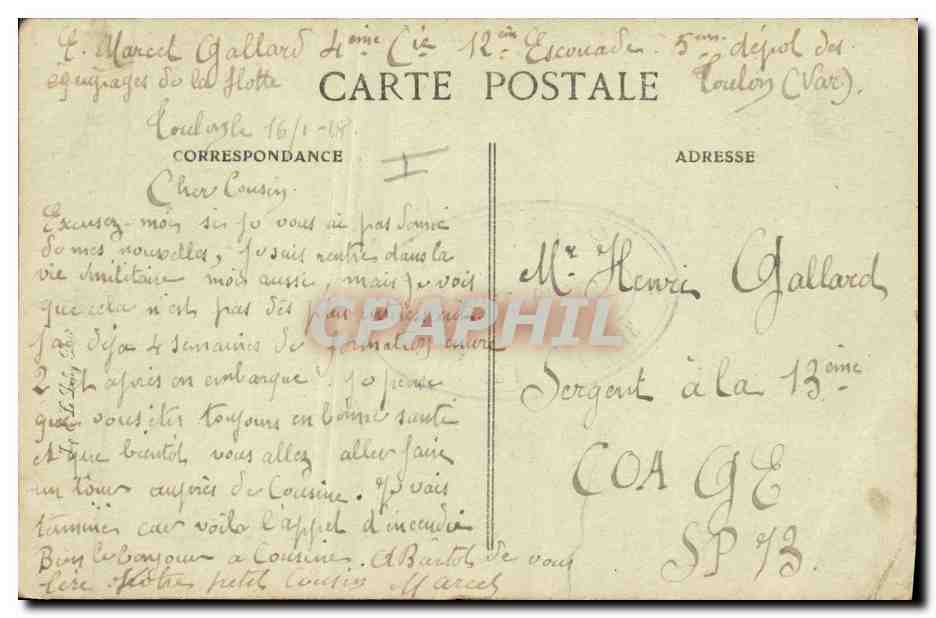 E. Marcel Gallard 4ème Cie 12ème Escouade. 5ème dépôt des
équipages de la flotte Toulon (Var).
CARTE POSTALE
Toulon le 16/1-18.
CORRESPONDANCE
ADRESSE
I
Cher Cousin.
Excusez-moi si je vous ai pas donné
de mes nouvelles, je suis rentré dans la
vie militaire moi aussi, mais je vois
que cela n'est pas des plus
J'ai déja 4 semaines de formation encore
2 et après on embarque. Je pense
que vous êtes toujours en bonne santé
et que bientôt vous allez aller faire
un tour auprès de Cousine. Je vais
terminé car voila l'appel d'incendie
Bien le bonjour a Cousine. A Bientôt de vous
lire Votre petit Cousin Marcel
Mr. Henri Gallard
Sergent à la 13ème
COA GE
SP 73.
CPAPHIL